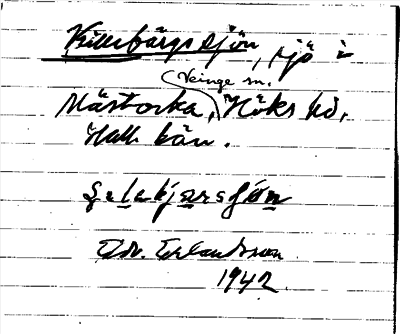 Killebärgssjön, sjö i
(Veinge sn.
Mästocka, Höks hd,
Hall. län.
Edv. Erlandsson
1942